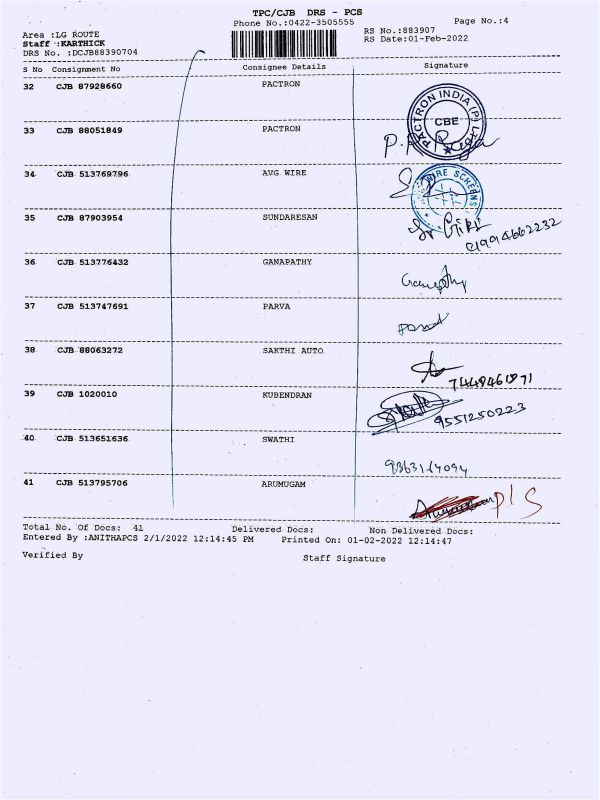 TPC/CJB DRS - PCS
Phone No.:0422-3505555 Page No.:4
Area :LG ROUTE RS No.:883907
Staff :KARTHICK RS Date:01-Feb-2022
DRS No. :DCJB88390704
S No Consignment No Consignee Details Signature
32 CJB 87928660 PACTRON
PACTRON INDIA (P) LTD
CBE
33 CJB 88051849 PACTRON
34 CJB 513769796 AVG WIRE
WIRE SCREENS
35 CJB 87903954 SUNDARESAN
9994662232
36 CJB 513776432 GANAPATHY
Ganapathy
37 CJB 513747691 PARVA
38 CJB 88063272 SAKTHI AUTO
39 CJB 1020010 KUBENDRAN
9551250223
40 CJB 513651636 SWATHI
9363164094
41 CJB 513795706 ARUMUGAM
Total No. Of Docs: 41 Delivered Docs: Non Delivered Docs:
Entered By :ANITHAPCS 2/1/2022 12:14:45 PM Printed On: 01-02-2022 12:14:47
Verified By Staff Signature